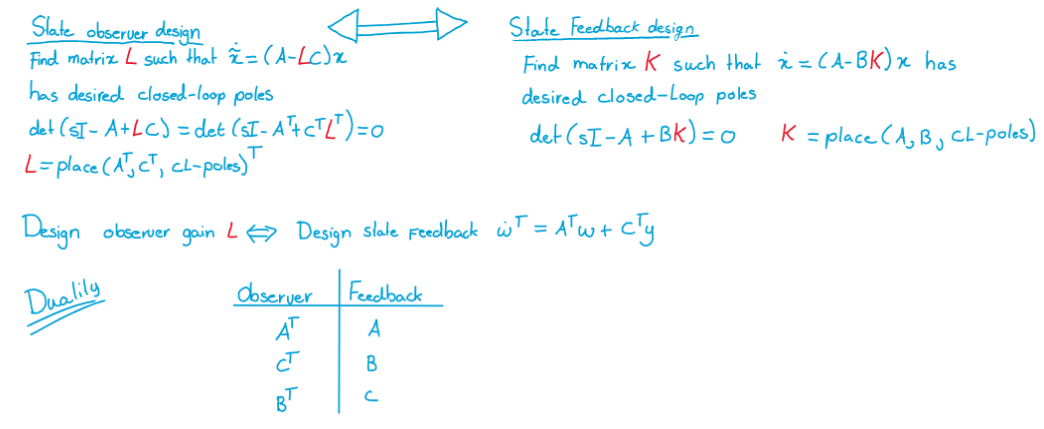 State observer design
Find matrix L such that x̃̇ = (A-LC)x
has desired closed-loop poles
det(sI - A+LC) = det(sI-Aᵀ+CᵀLᵀ)=0
L=place(Aᵀ, Cᵀ, CL-poles)ᵀ
State Feedback design
Find matrix K such that ẋ = (A-BK)x has
desired closed-Loop poles
det(sI-A + BK) = 0 K = place(A, B, CL-poles)
Design observer gain L ⇔ Design state Feedback ẇᵀ = Aᵀw + Cᵀy
Duality
Observer Feedback
Aᵀ A
Cᵀ B
Bᵀ C